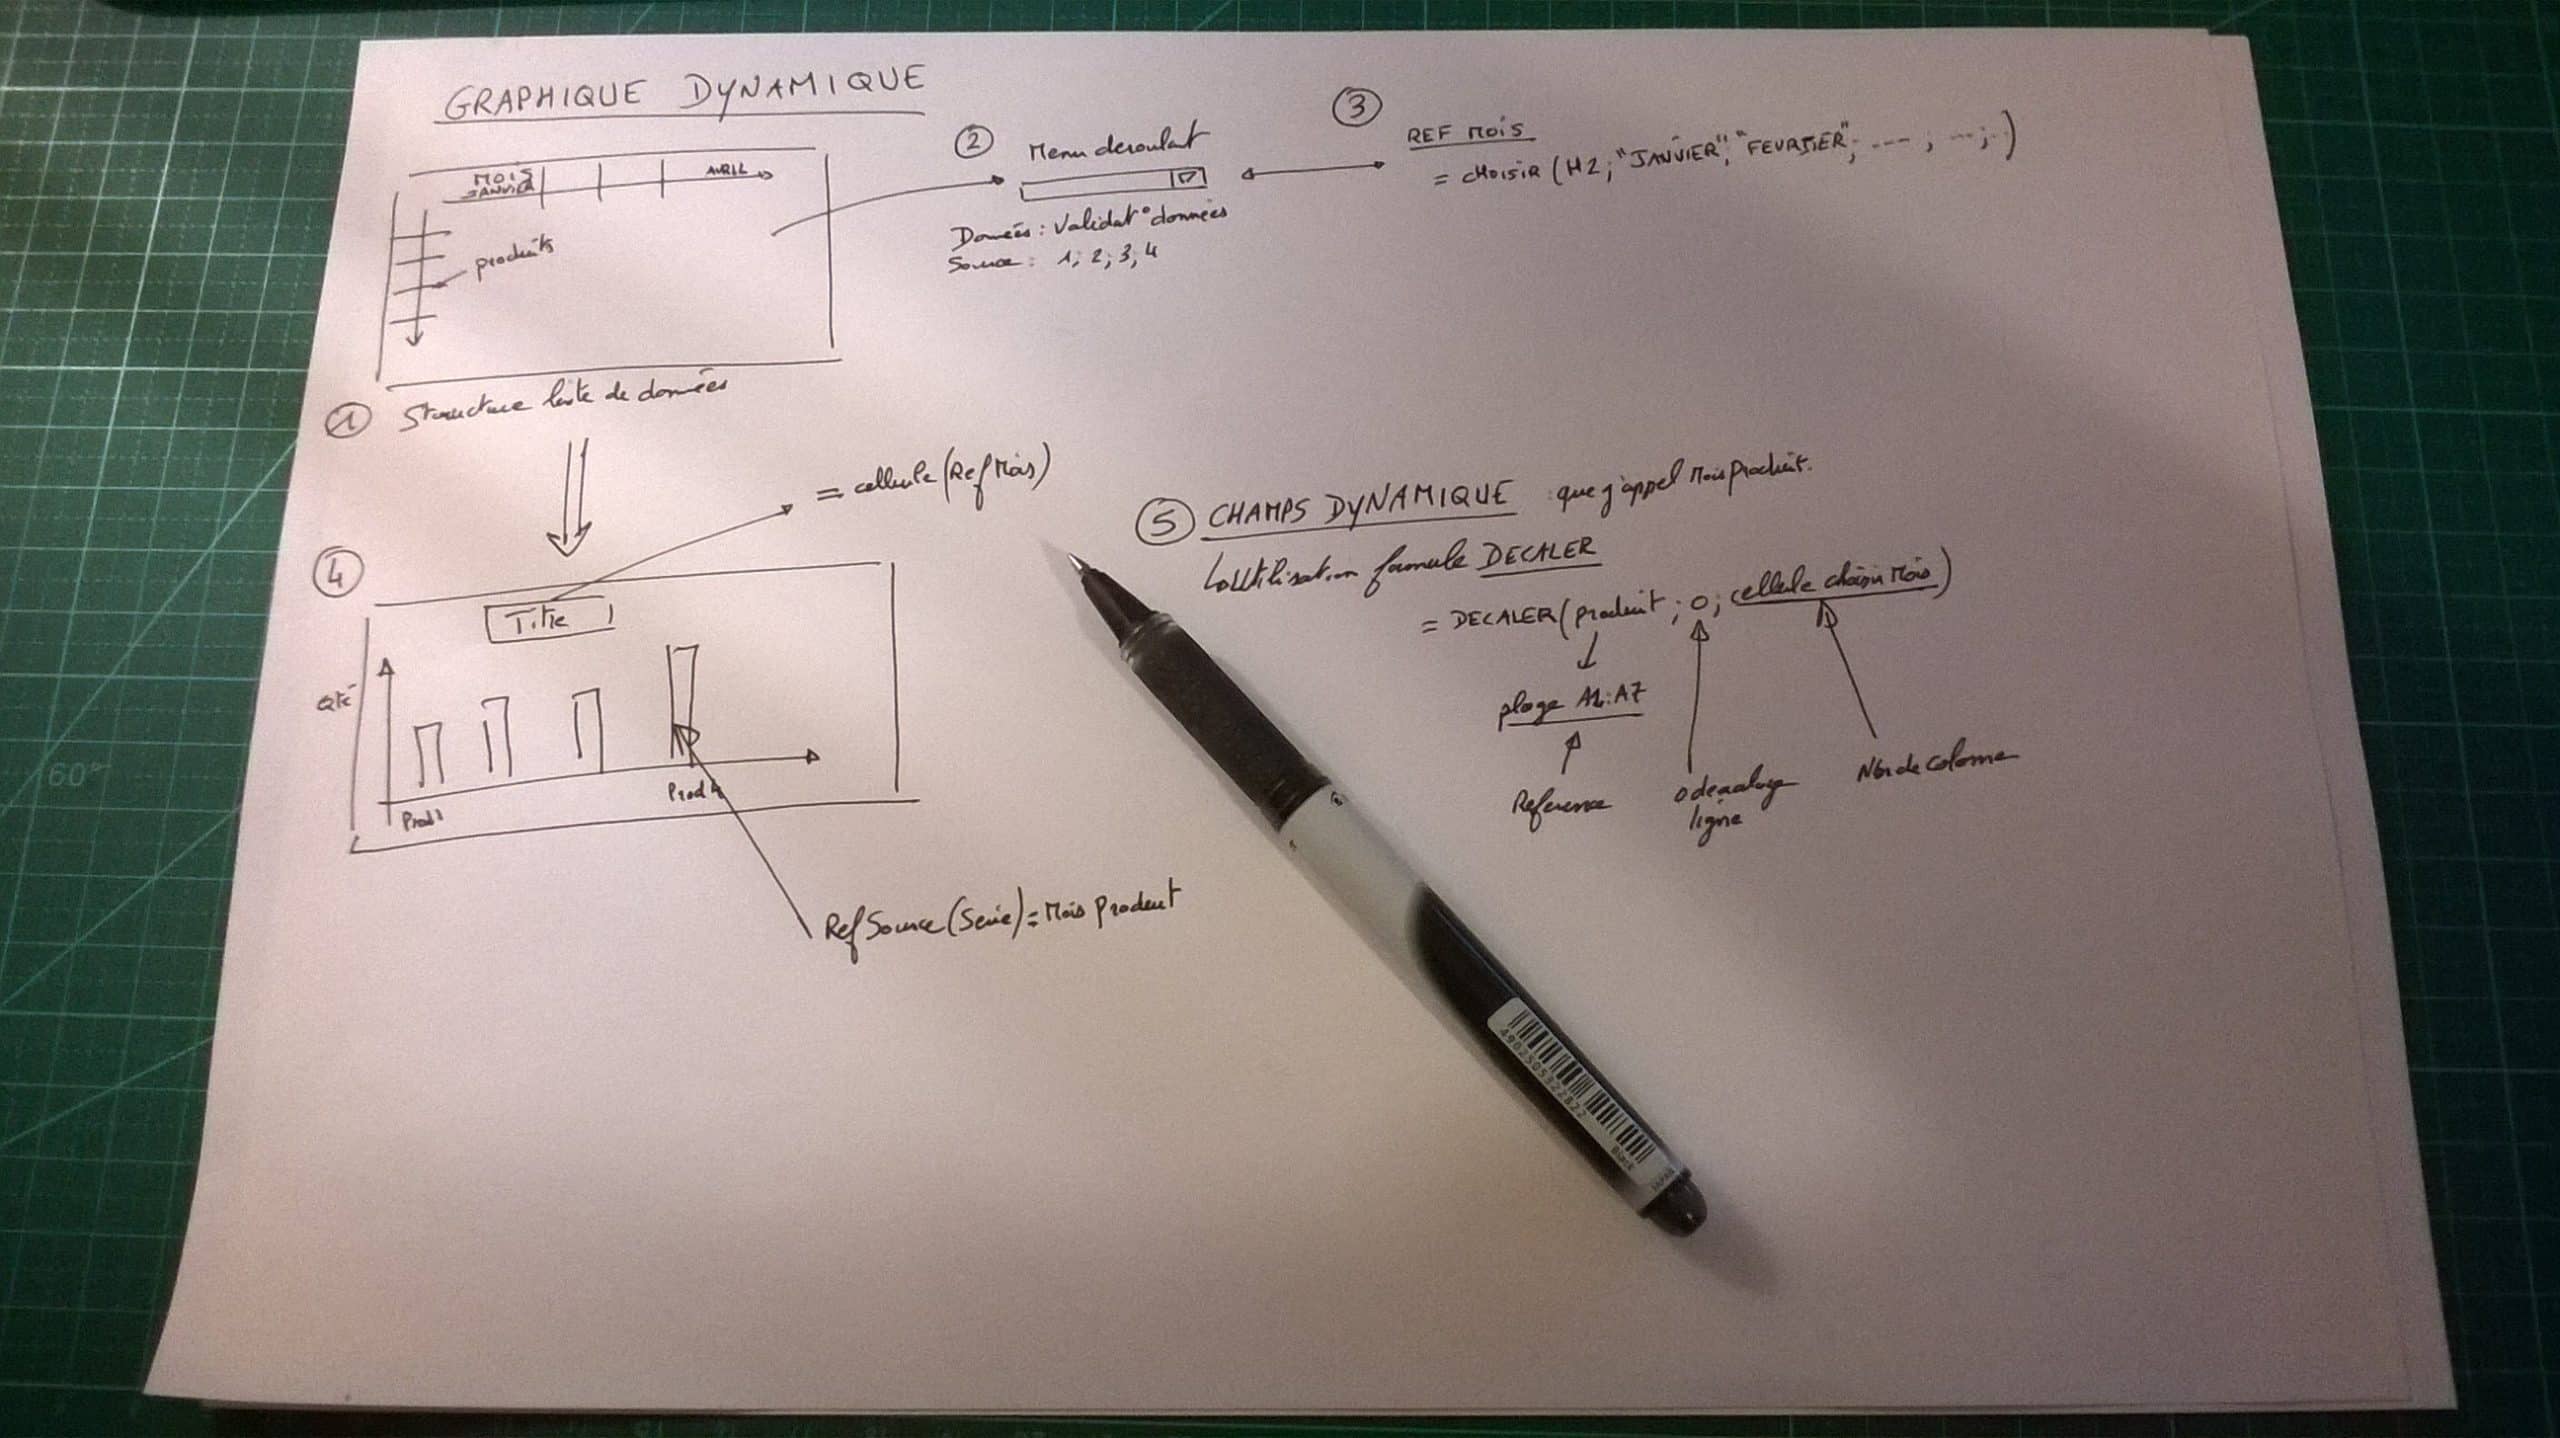 GRAPHIQUE DYNAMIQUE
MOIS
JANVIER
AVRIL
produits
① Structure liste de données
②
Menu deroulant
Données : Validat° données
Source : 1; 2; 3; 4
③
REF MOIS
= CHOISIR (H2; "JANVIER"; "FEVRIER"; --- ; --- ; )
④
= cellule (Ref Mois)
Titre
Qté
Prod1
Prod4
Ref Source (Serie) = Mois Produit
⑤ CHAMPS DYNAMIQUE que j'appel Mois Produit.
Utilisation formule DECALER
= DECALER (produit ; 0 ; cellule choisir Mois)
plage A2:A7
Reference
0 decalage
ligne
Nbr de colonne
60°
4902505322822
Black
JAPAN